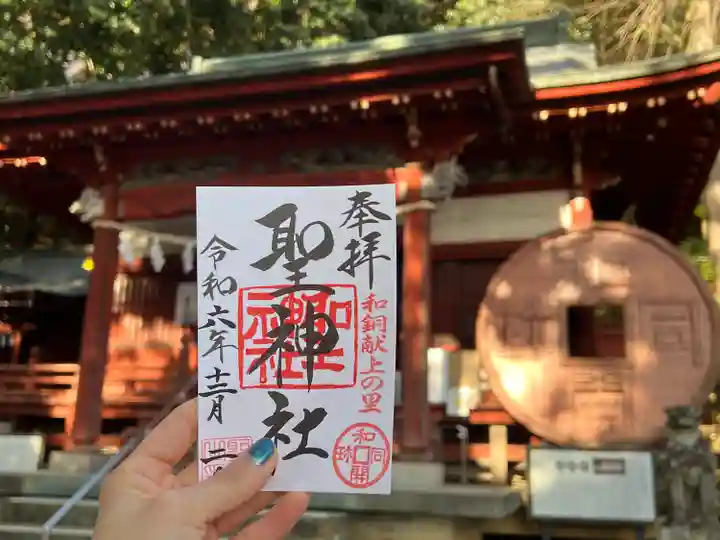 奉拝
和銅献上の里
聖神社
和同開珎
令和六年十二月